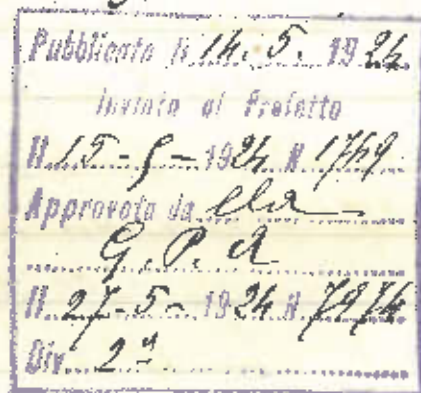 Pubblicato li 14. 5. 1924
Inviata al Prefetto
Il 15 - 5 - 1924 N 1769
Approvata da lla
G. P. A
Il 27 - 5 - 1924 N 7974
Div. 2ª